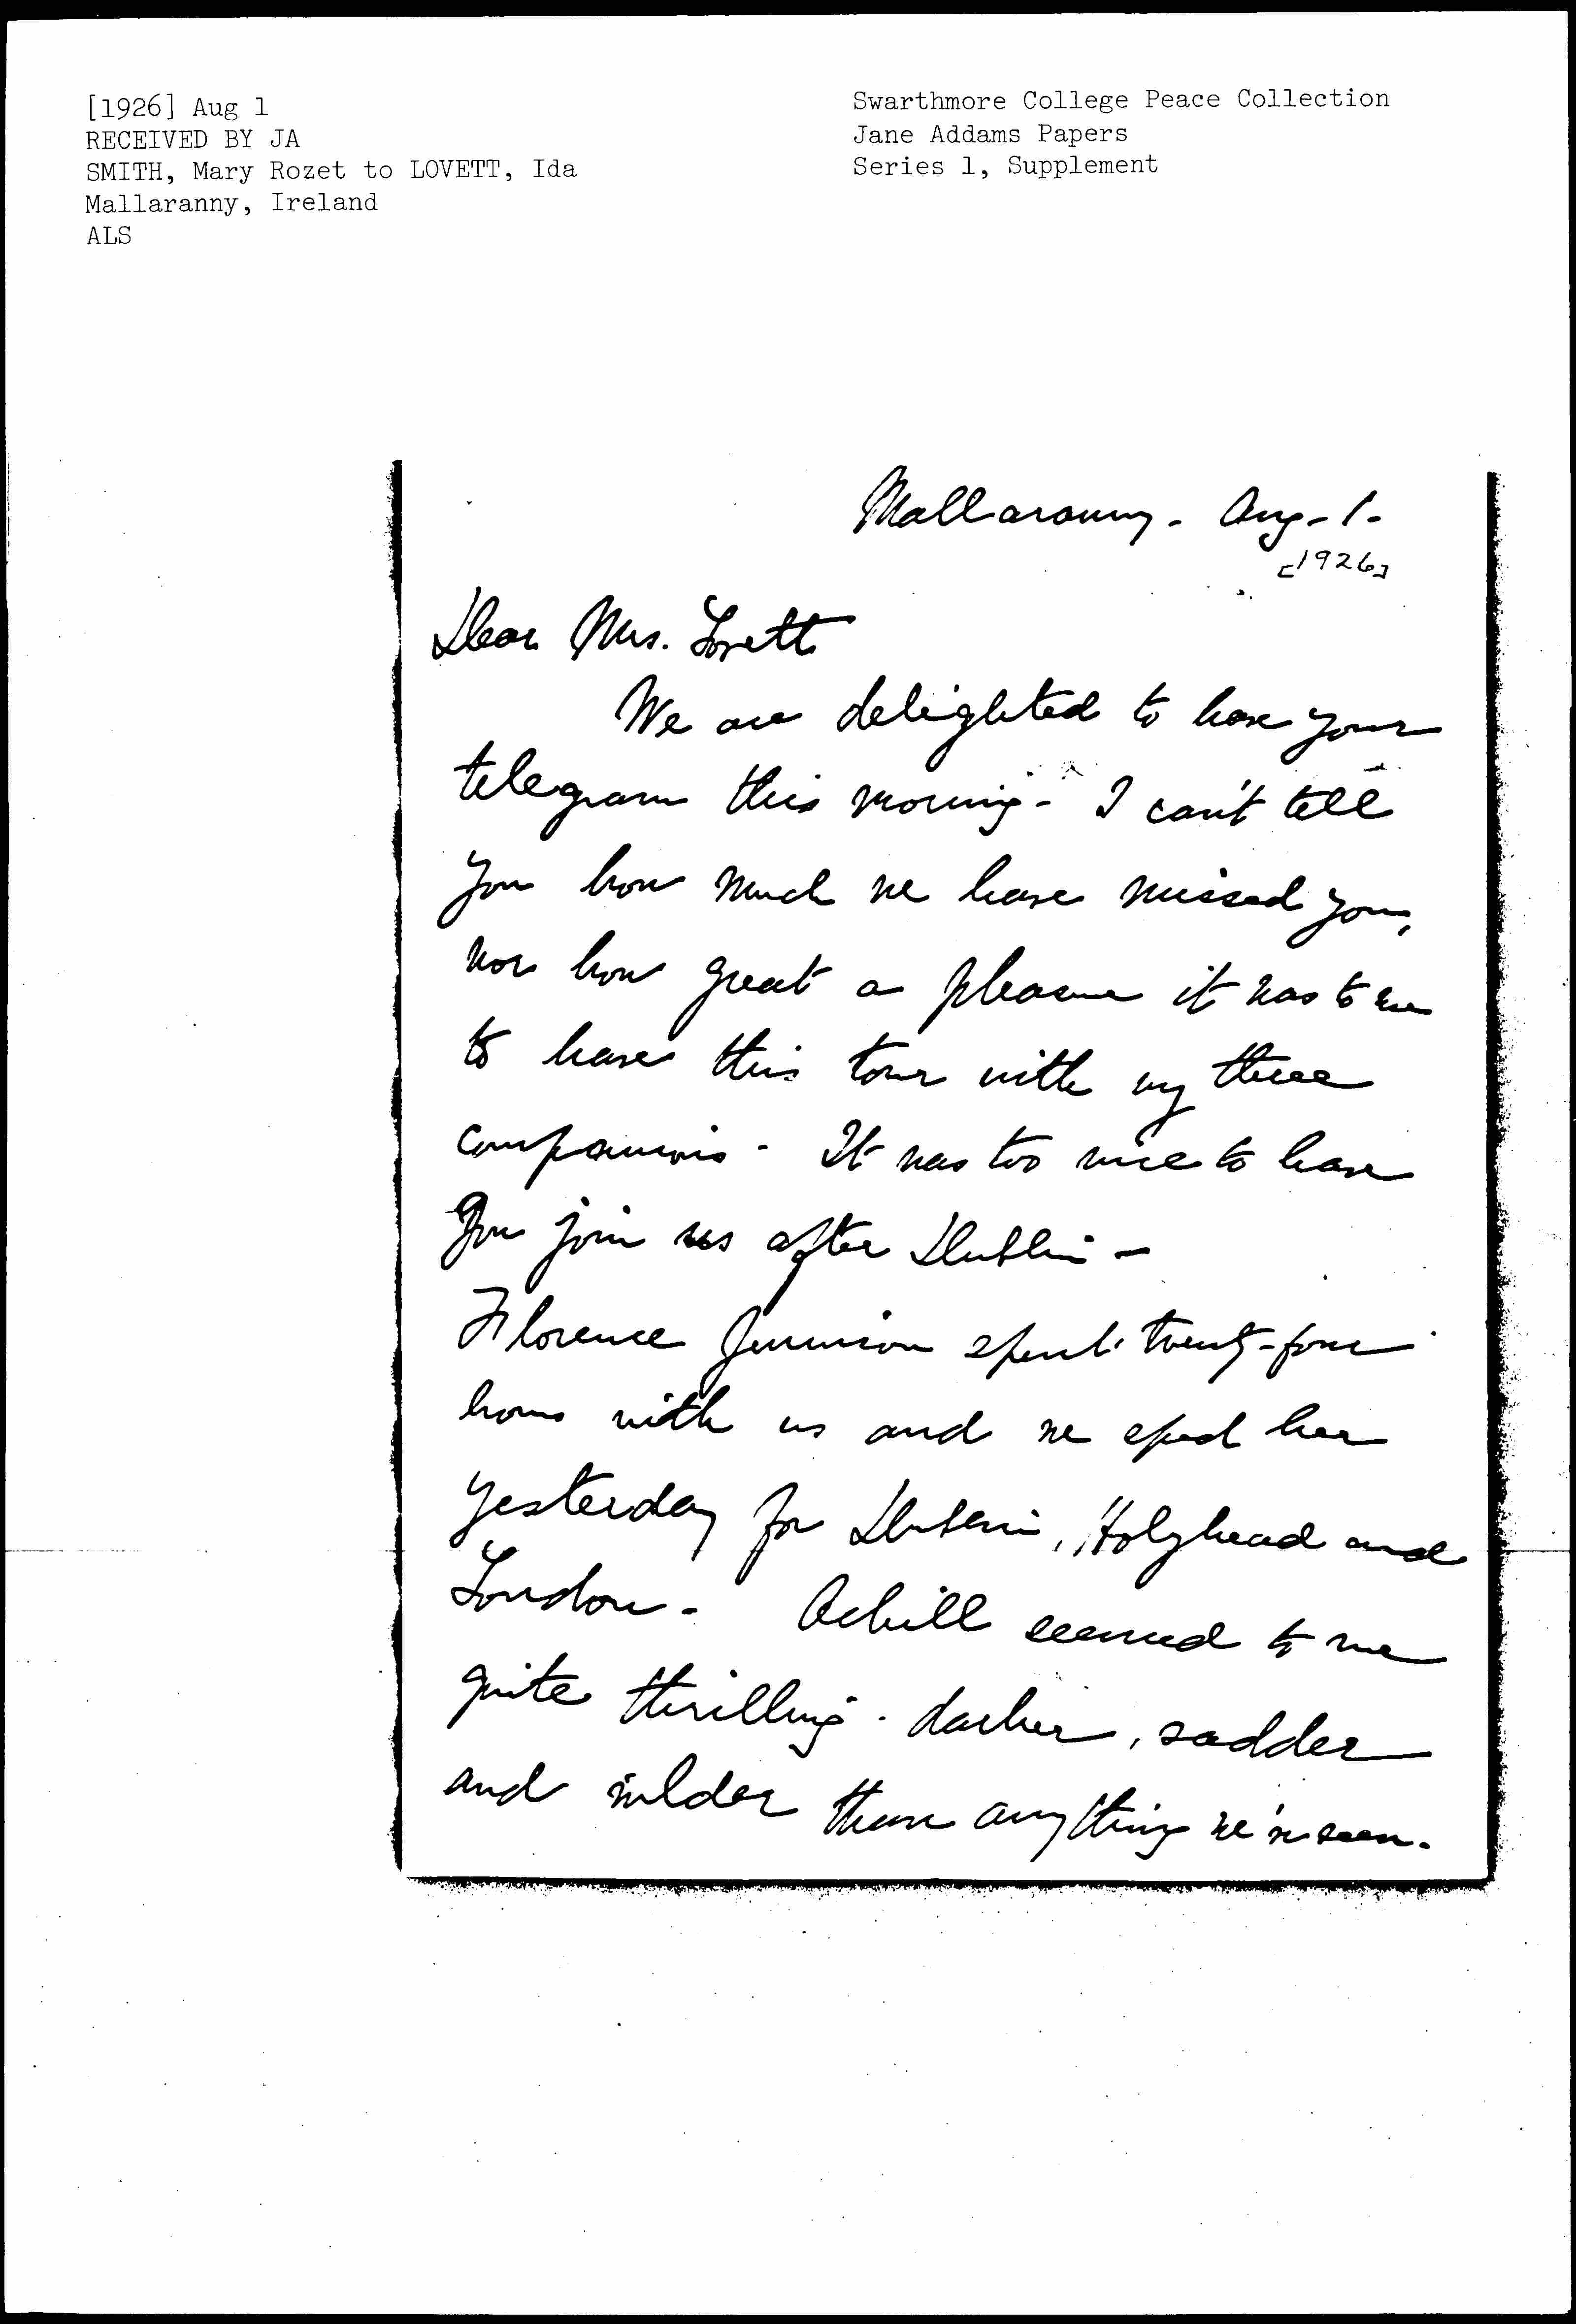 [1926] Aug 1
RECEIVED BY JA
SMITH, Mary Rozet to LOVETT, Ida
Mallaranny, Ireland
ALS
Swarthmore College Peace Collection
Jane Addams Papers
Series 1, Supplement
Mallaranny - Aug - 1 -
[1926]
Dear Mrs. Lovett
We are delighted to have your
telegram this morning - I can't tell
you how much we have missed you,
nor how great a pleasure it was to me
to have this tour with my three
companions - It was too nice to have
you join us after Dublin -
Florence spent twenty-four
hours with us and we sped her
yesterday for Dublin, Holyhead and
London - Achill seemed to me
quite thrilling - darker, sadder
and wilder than anything we've seen.